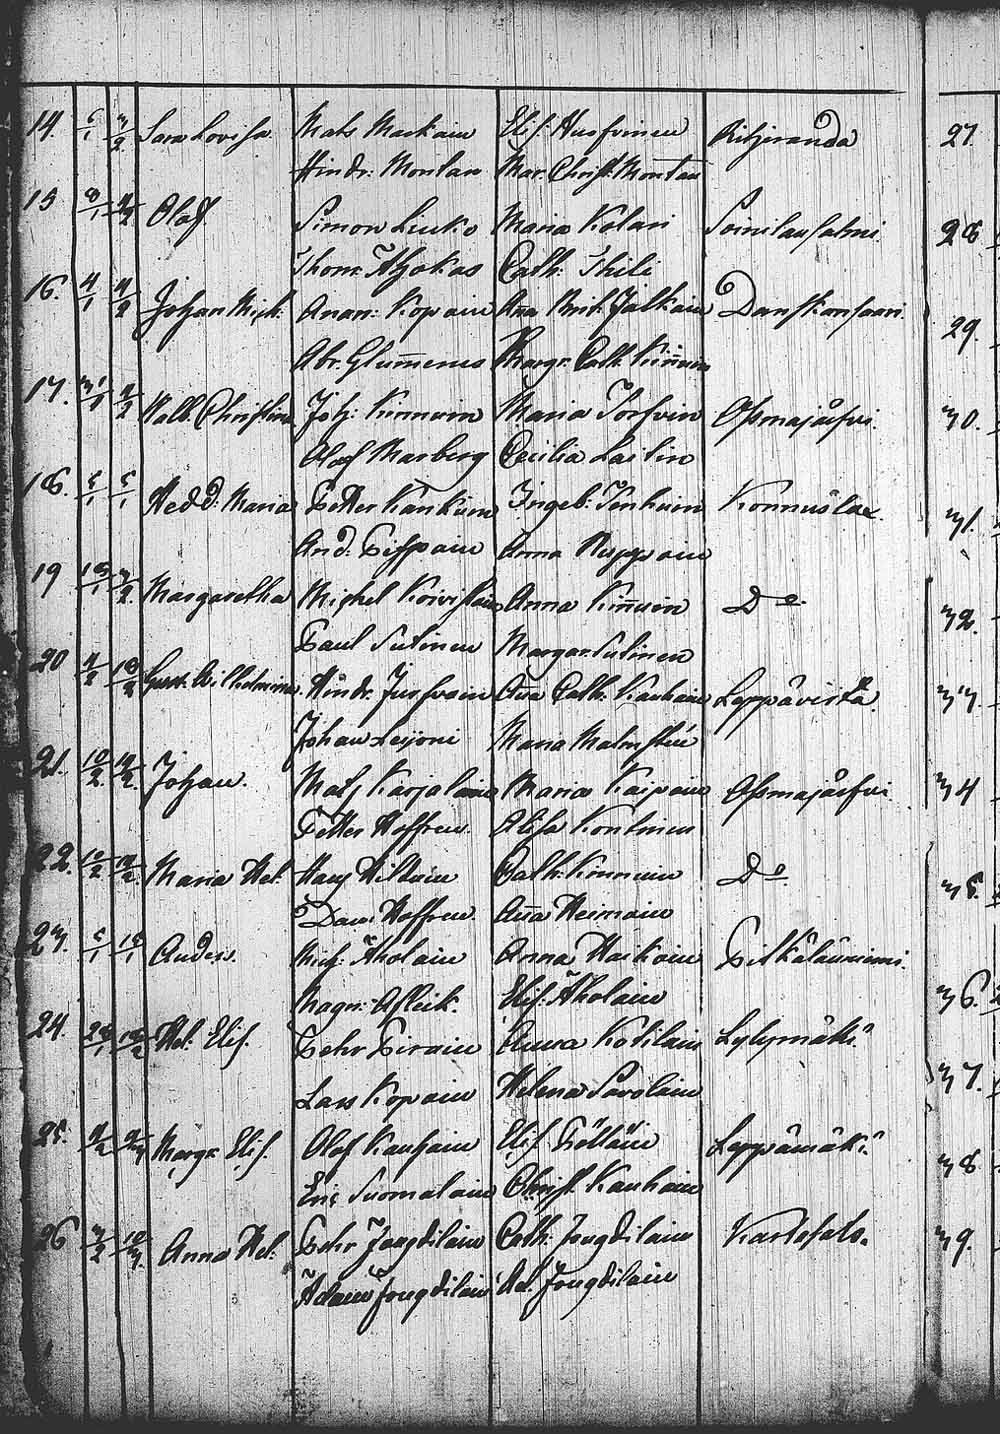 14. 6/1 3/2 Sara Lovisa Mats Markain Elis. Husfvinen Ritjeranda
Hindr: Montan Mar. Christ. Montan
15 8/1 Olof Simon Liuko Maria Kolari Soinilansalmi
Thom: Ahokas Cath: Thili
16. 4/1 4/2 Johan Mich: Anan: Kopain Aña Brit: Jalkain Danskansaari
Abr. Glum̄erus Margr. Cath. Kiñuin
17. 31/1 4/2 Walb. Christina Joh: Kinnuin Maria Torfvin Osmajärfvi
Olof Marberg Cecilia Lastin
18. 5/1 5/1 Hedd: Maria Petter Kankuin Ingeb: Tenhuin Konnuslax
And: Pispain Anna Ruppain
19 18/1 3/2 Margaretha Michel Koivistain Anna Kiñuin Do
Paul Sutinen Margar. Sutinen
20 4/2 18/2 Gust: Wilhelmina Hindr. Jurfvain Aña Cath: Kauhain Leppävirta
Johan Leijoni Maria Malmstén
21. 10/2 Johan. Mats Karjalain Maria Kaipain Osmajärfvi
Petter Hoffren Alisa Kontinen
22. 10/2 Maria Hel: Hans Hiltuin Cath: Kinnuin Do
Dav: Hoffren Aña Heimoin
23. 5/1 Anders. Mich: Aholain Anna Haikain Pitkälänniemi
Magn: Afleck. Elis: Aholain
24. 28/1 Hel: Elis. Pehr Pirain Anna Kotilain Lylymäki
Lars Kopain Helena Savolain
25. Margr: Elis. Olof Kauhain Elis. Pöllä̈in Leppämäki
Eric Suomalain Christ. Kauhain
26 3/2 10/3 Anna Hel: Pehr Joughilain Cath: Joughilain Kartefals.
Adam Joughilain Hel. Joughilain
27.
28
29.
30.
31.
32.
33.
34
35.
36.
37.
38.
39.